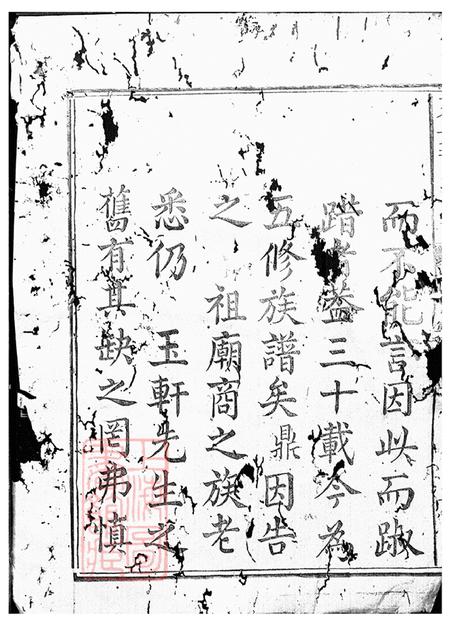 而不能言因此而踧
踖者蓋三十載今為
五修族譜矣鼎因告
之祖廟商之族老
悉仍玉軒先生之
舊有其缺之罔弗慎